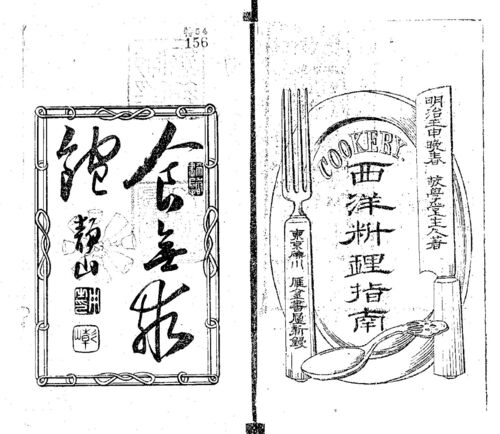 COOKERY.
明治壬申晩春 敬學堂主人著
西洋料理指南
東京 雁金書屋新鐫
156
食無求
飽
靜山